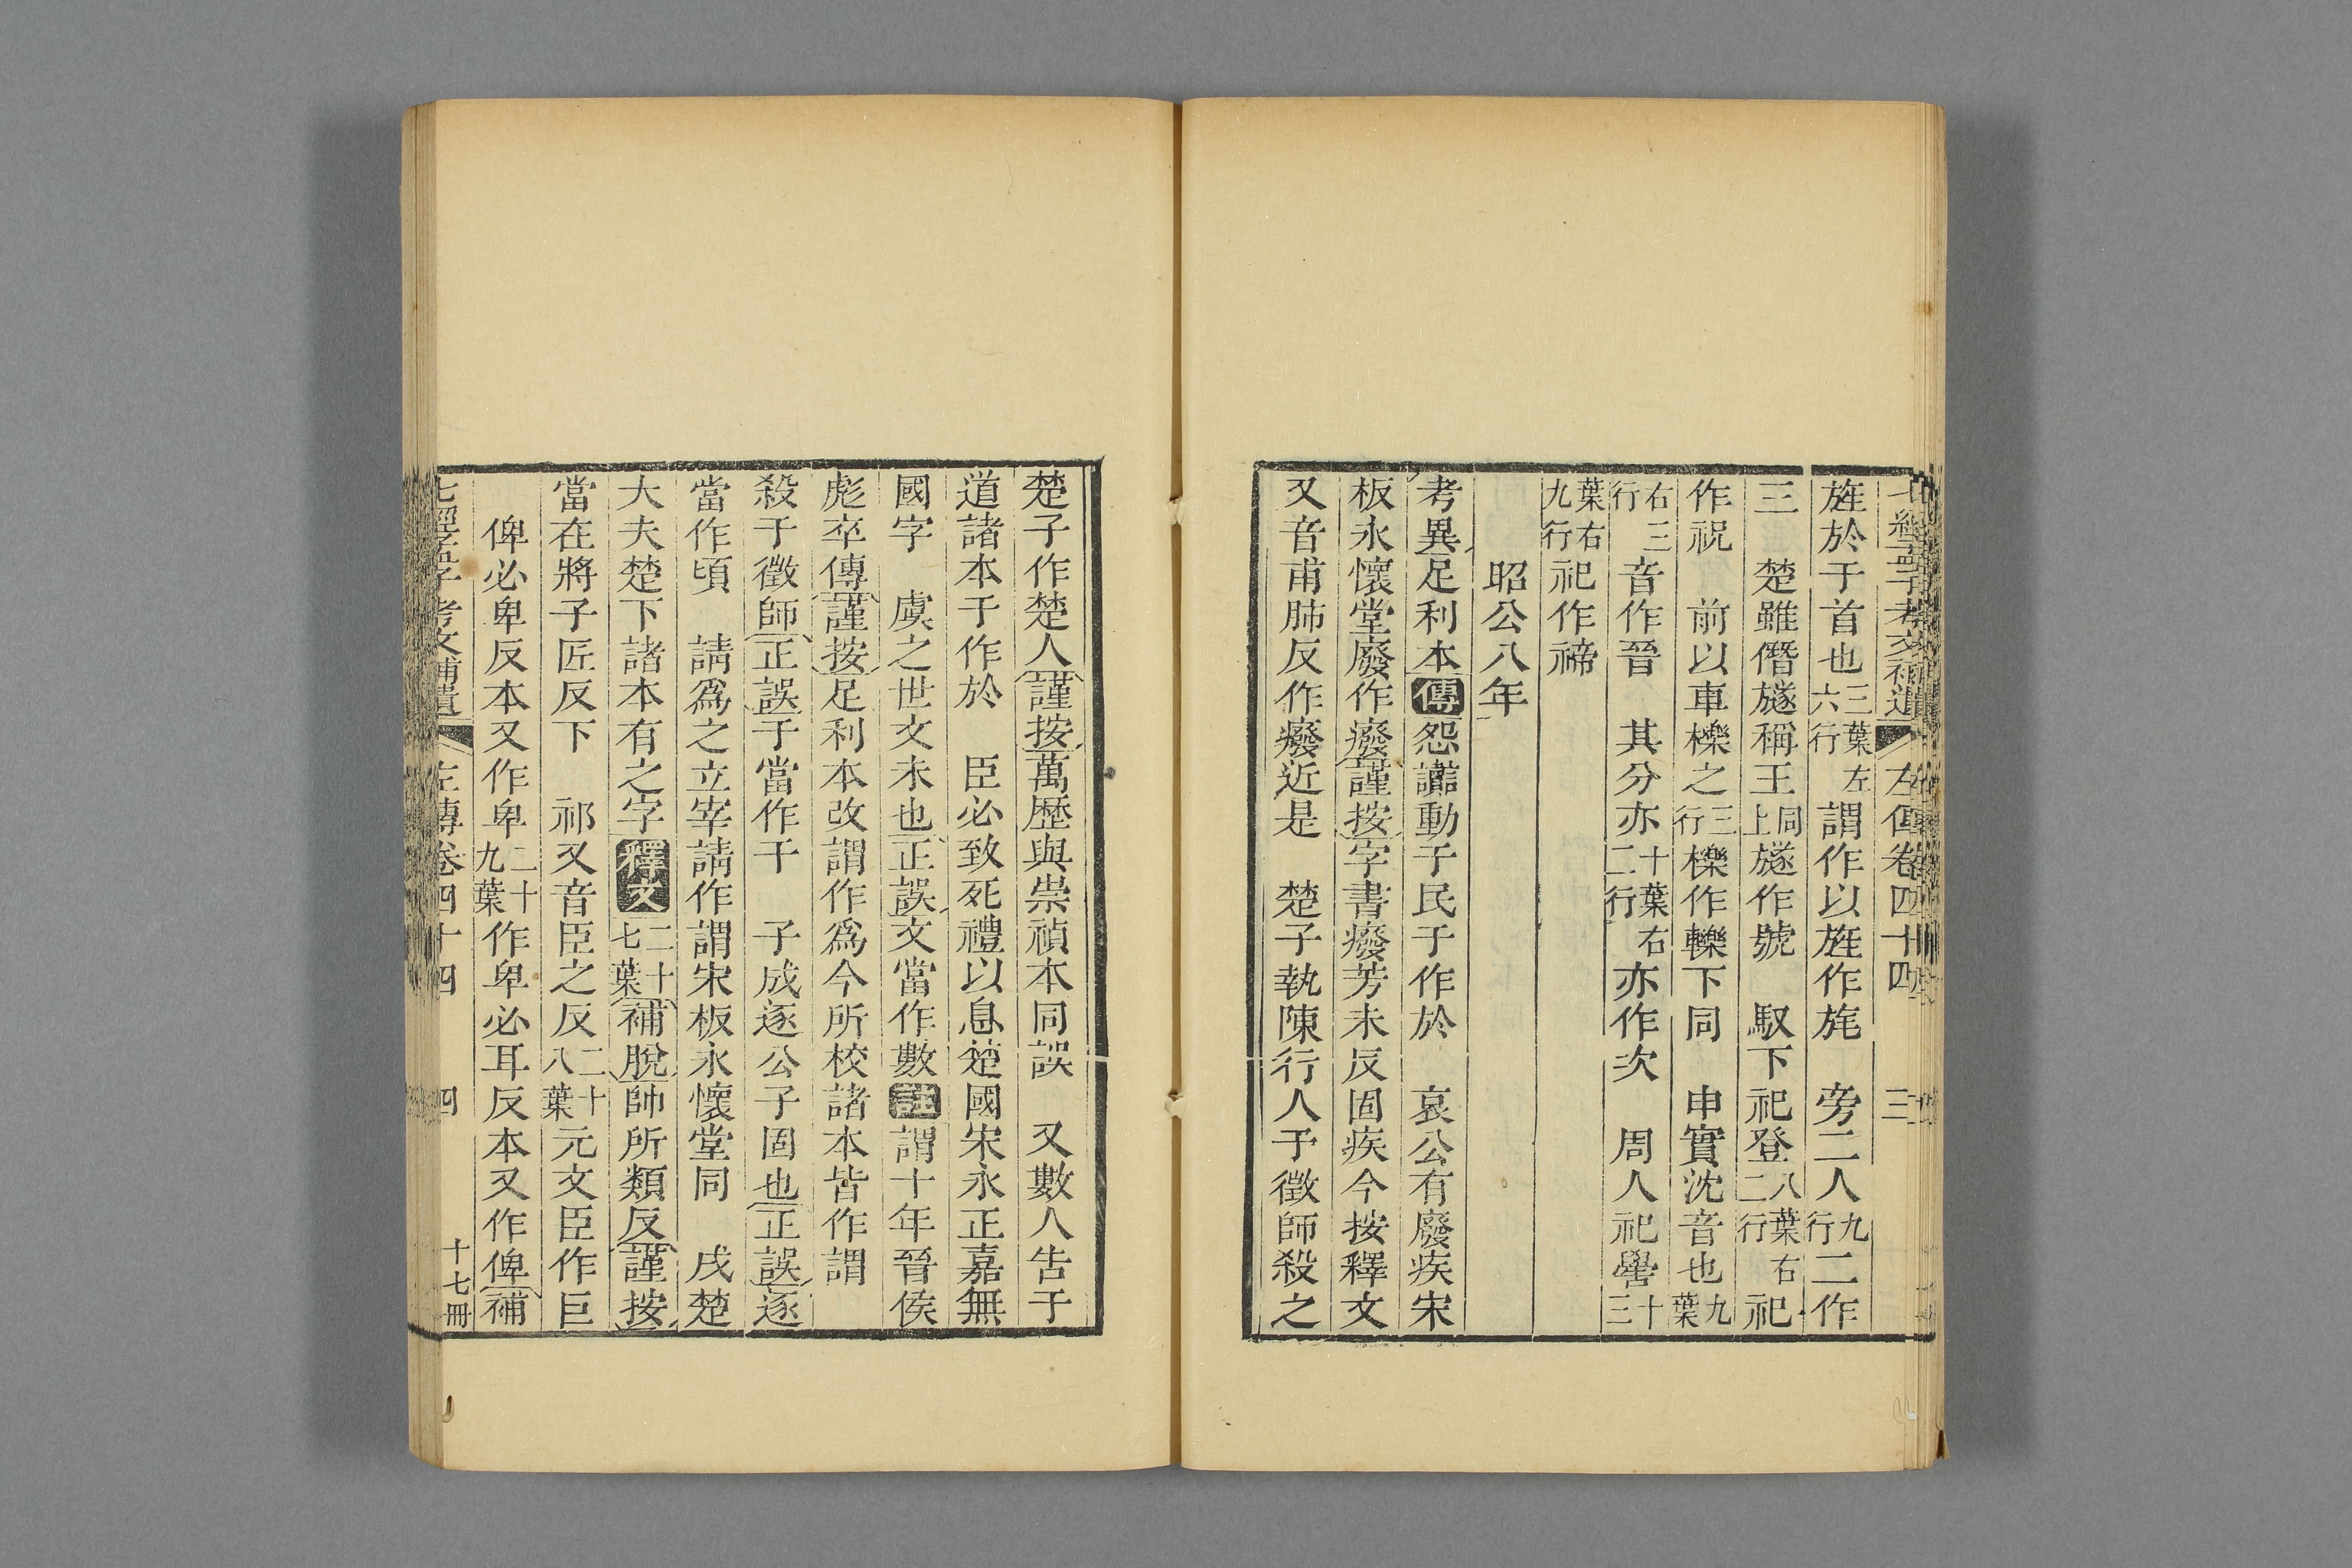 七經孟子考文補遺 左傳卷四十四 三
旌於于首也三葉左六行謂作以旌作旄 旁二人九行二作
三 楚雖僭䢫稱王同上䢫作號 馭下祀登八葉右二行祀
作祝 前以車櫟之三行櫟作轢下同 申實沈音也九葉
右三行音作晉 其分亦十葉右二行亦作次 周人祀嚳十三
葉右九行祀作禘
昭公八年
考異足利本傳怨讟動于民于作於 哀公有廢疾宋
板永懷堂廢作癈謹按字書癈芳未反固疾今按釋文
又音甫肺反作癈近是 楚子執陳行人干徵師殺之
楚子作楚人謹按萬歷與崇禎本同誤 又數人告于
道諸本于作於 臣必致死禮以息楚國宋永正嘉無
國字 虞之世文未也正誤文當作數註謂十年晉侯
彪卒傳謹按足利本改謂作爲今所校諸本皆作謂
殺于徵師正誤于當作干 子成逐公子固也正誤逐
當作頃 請爲之立宰請作謂宋板永懷堂同 戌楚
大夫楚下諸本有之字釋文二十七葉補脫帥所類反謹按
當在將子匠反下 祁又音臣之反二十八葉元文臣作巨
俾必卑反本又作卑二十九葉作卑必耳反本又作俾補
七經孟子考文補遺 左傳卷四十四 四 十七冊